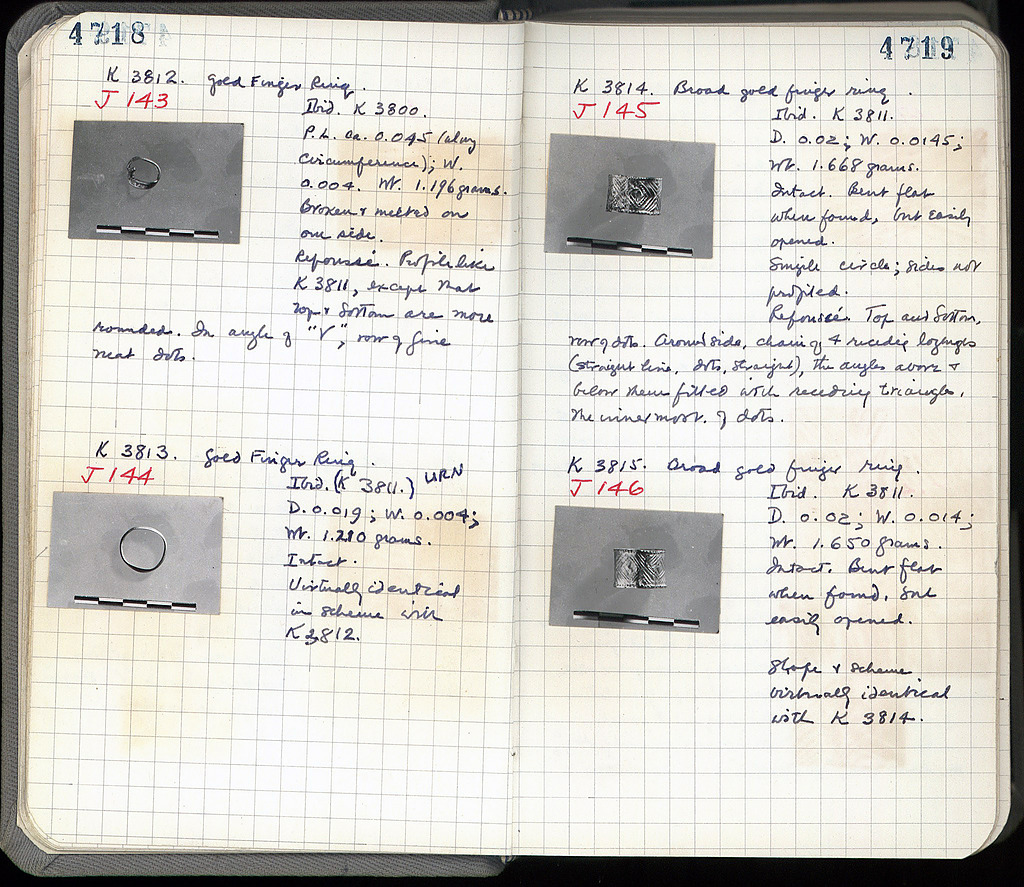 4718
K 3812. Gold Finger Ring.
J 143
Ibid. K 3800.
P.L. ca. 0.045 (along
circumference); W.
0.004. Wt. 1.196 grams.
Broken & melted on
one side.
Repoussé. Profile like
K 3811, except that
top & bottom are more
rounded. In angle of "V", row of fine
neat dots.
K 3813. Gold Finger Ring.
J 144
Ibid. (K 3811.) URN
D. 0.019; W. 0.004;
Wt. 1.210 grams.
Intact.
Virtually identical
in scheme with
K 3812.
4719
K 3814. Broad gold finger ring.
J 145
Ibid. K 3811.
D. 0.02; W. 0.0145;
Wt. 1.668 grams.
Intact. Bent flat
when found, but easily
opened.
Simple circle; sides not
profiled.
Repoussé. Top and bottom,
row of dots. Around side, chain of 4 receding lozenges
(straight line, dots, straight), the angles above &
below them filled with receding triangles,
the innermost of dots.
K 3815. Broad gold finger ring.
J 146
Ibid. K 3811.
D. 0.02; W. 0.014;
Wt. 1.650 grams.
Intact. Bent flat
when found, but
easily opened.
Shape & scheme
virtually identical
with K 3814.